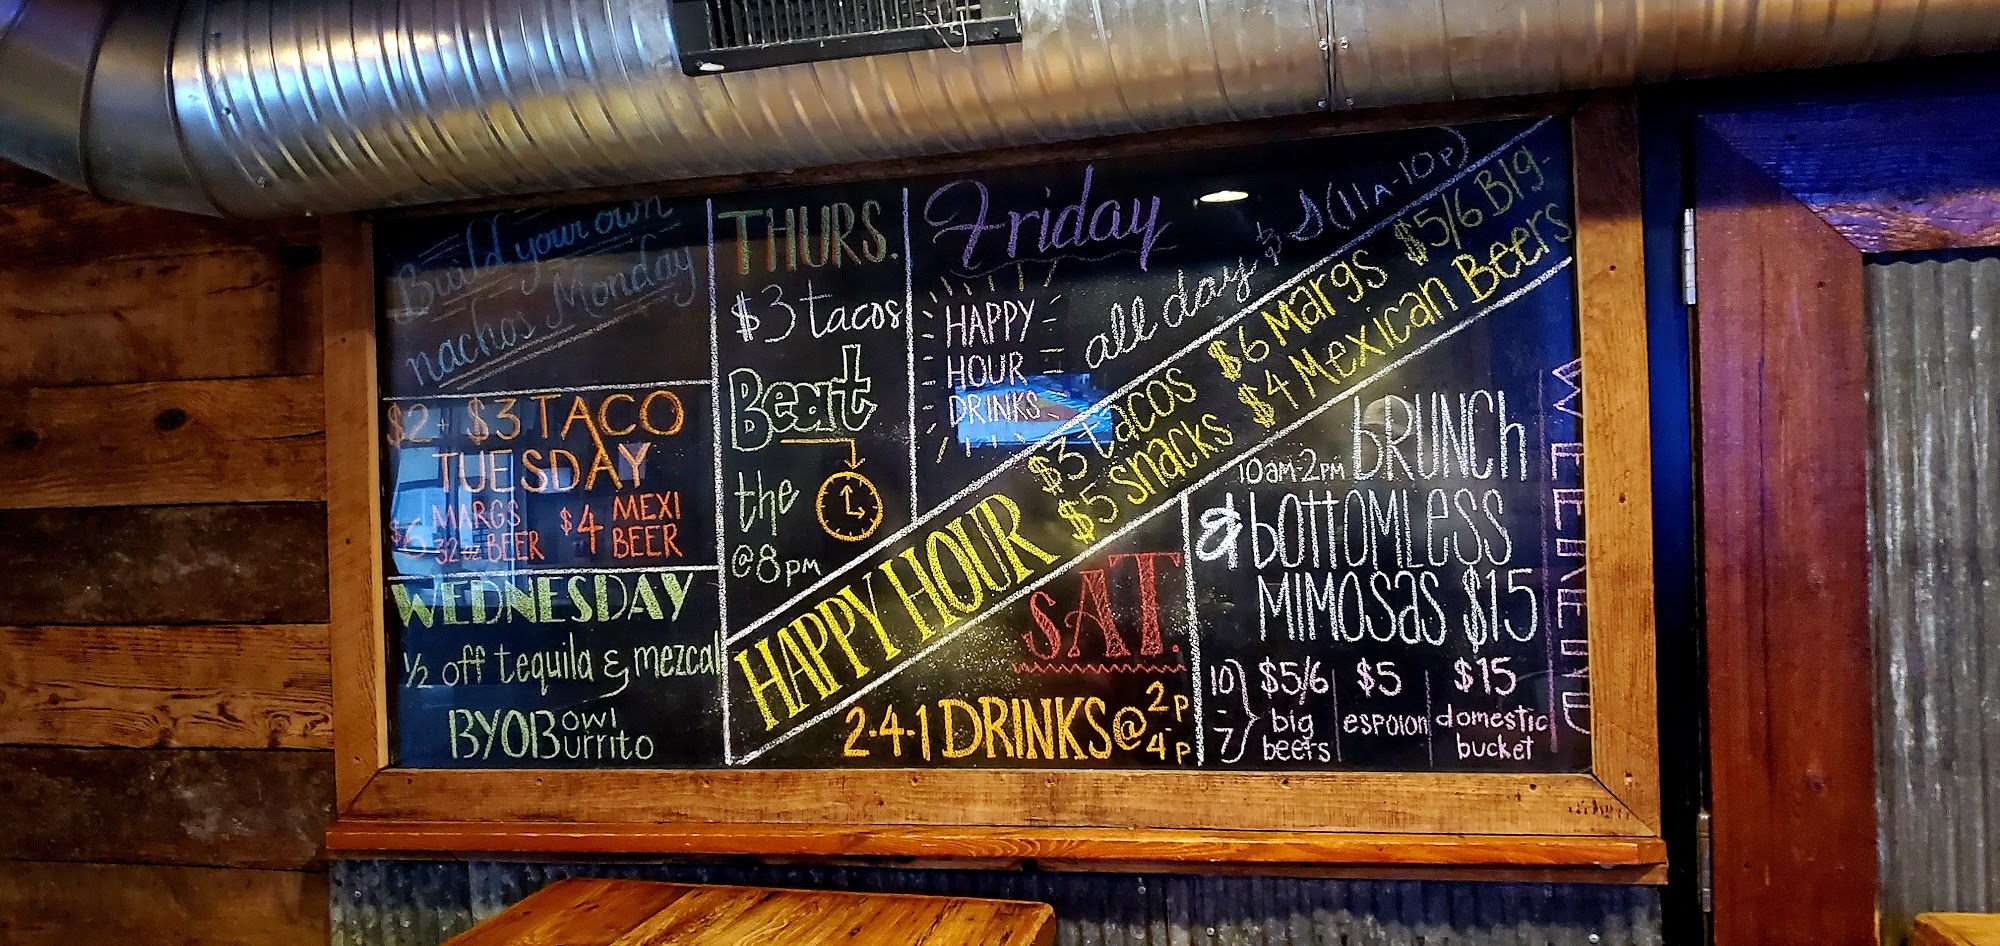 Build your own
nachos Monday
$2 + $3 TACO
TUESDAY
$6 MARGS
32oz BEER
$4 MEXI
BEER
WEDNESDAY
½ off tequila & mezcal
BYOBowl
urrito
THURS.
$3 tacos
Beat
the
@8pm
Friday
HAPPY
HOUR
DRINKS
all day
(11A-10P)
HAPPY HOUR
$3 tacos $6 Margs $5/6 BIG-
$5 snacks $4 Mexican Beers
SAT.
2-4-1 DRINKS @ 2p
4p
WEEKEND
10AM-2PM BRUNCH
& bottomless
MIMOSAS $15
10
-
7
$5/6
big
beers
$5
espolon
$15
domestic
bucket